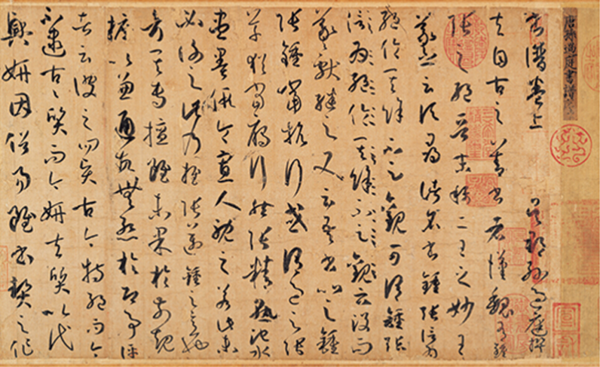 唐孫過庭書譜
書譜卷上 吳郡孫過庭撰
夫自古之善書者漢魏有鍾
張之絕晉末稱二王之妙王
羲之云頃尋諸名書鍾張信為
絕倫其餘不足觀可謂鍾張
信為絕倫其餘不足觀云沒而
羲獻繼之又云吾書比之鍾
張鍾當抗行或謂過之張
草猶當雁行然張精熟池水
盡墨假令寡人耽之若此未
必謝之此乃推張邁鍾之意也
考其專擅雖未果於前規
摭以兼通故無慚於即事評
者云彼之四賢古今特絕而今
不逮古古質而今妍夫質以代
興妍因俗易雖書契之作